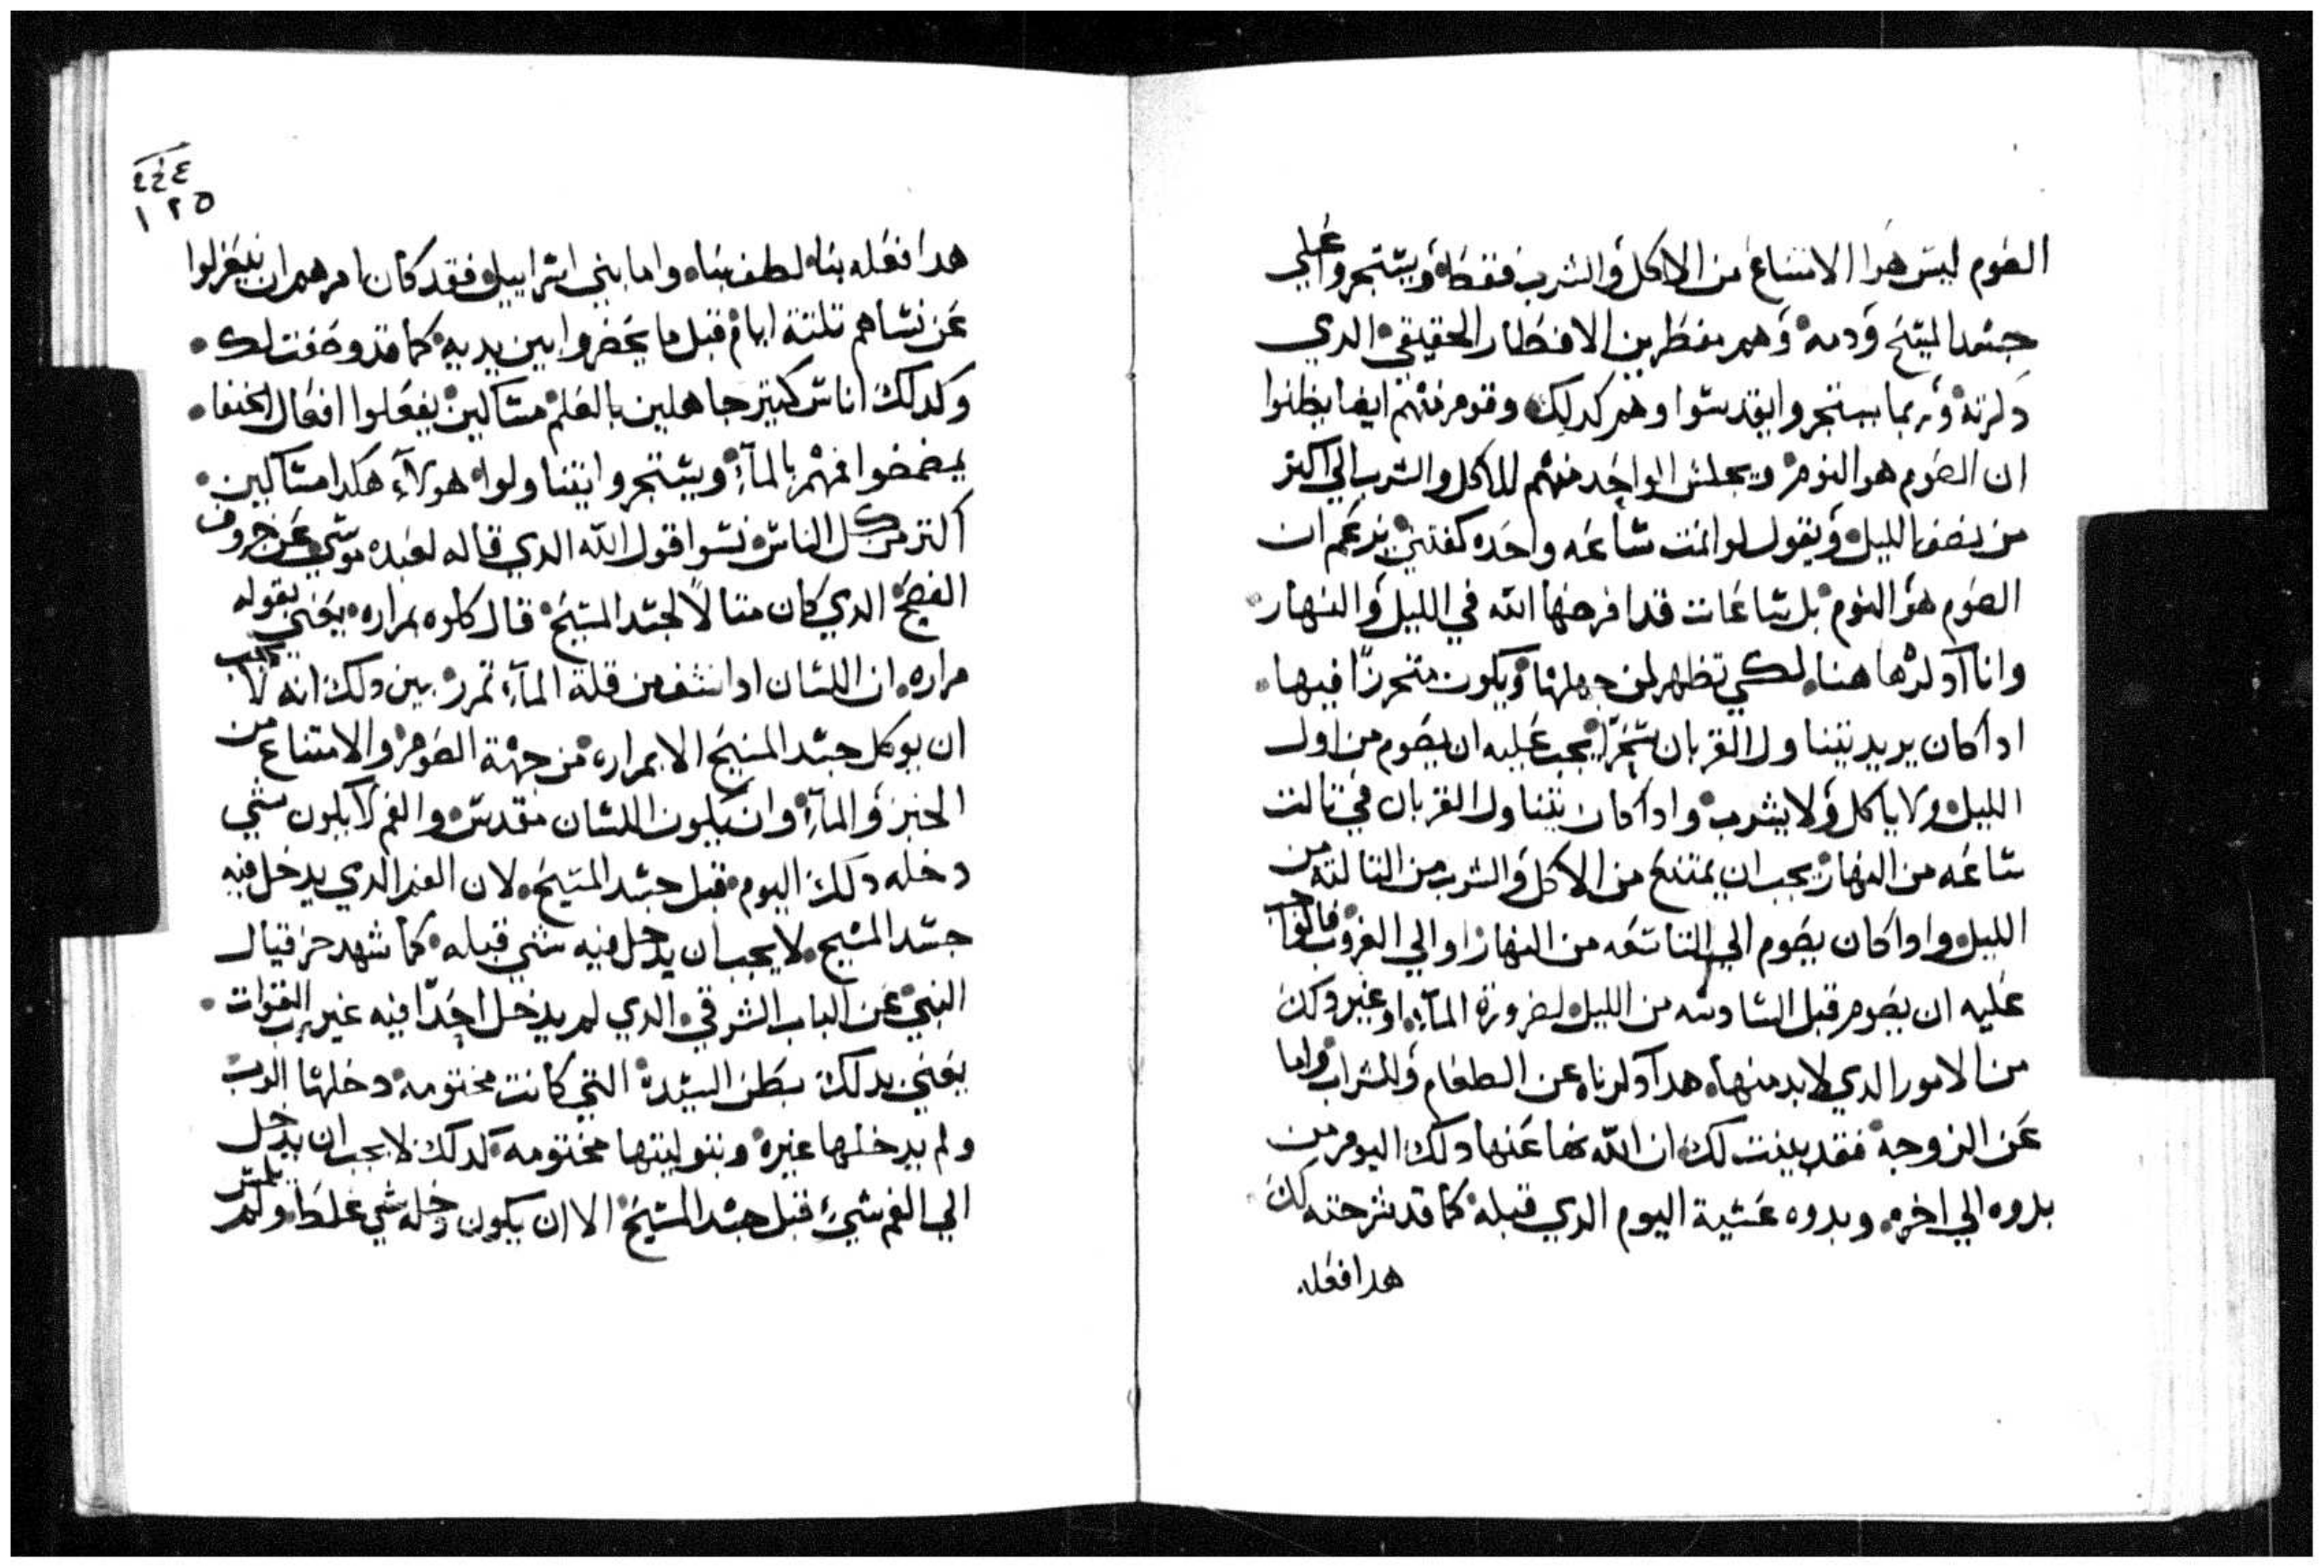 الصوم ليس هو الامتناع من الاكل والشرب فقط ويستجروا على
جسد المسيح ودمه وهم مفطرين الافطار الحقيقي الدي
دكرته وربما يستجروا يقدسوا وهم كدلك وقوم منهم ايضا يظنوا
ان الصوم هو النوم ويجلس الواحد منهم للاكل والشرب الي اكتر
من نصف الليل ويقول لو انمت ساعه واحده كفتني يزعم ان
الصوم هو النوم بل ساعات قد افرضها الله في الليل والنهار
وانا ادكرها هنا لكي تظهر لمن جهلها ويكون متحرزا فيها
ادا كان يريد يتناول القربان سحرا يجب عليه ان يصوم من اول
الليل ولا ياكل ولا يشرب وادا كان يتناول القربان في تالت
ساعه من النهار يجب ان يمتنع من الاكل والشرب من التالته من
الليل وادا كان يصوم الي التاسعه من النهار او الي الغروب
عليه ان يصوم قبل السادسه من الليل لضرورة الماء او غير دلك
من الامور الدي لابد منها هدا دكرناه عن الطعام والشراب واما
عن الزوجه فقد بينت لك ان الله نها عنها دلك اليوم من
بدوه الي اخره وبدوه عشية اليوم الدي قبله كما قد شرحته لك
هدا فعله
٤٤٤
١٢٥
هدا فعله بنا لطف بنا واما بني اسراييل فقد كان امرهم ان يعتزلوا
عن نساهم تلتة ايام قبل ما يحضروا بين يديه كما قد وصفت لك
وكدلك اناس كتير جاهلين بالعلم مساكين يفعلوا افعال الحنفا
يمضمضوا فمهم بالماء ويستجروا يتناولوا هولاء هكدا مساكين
اكتر من كل الناس نسوا قول الله الدي قاله لعبده موسي عن خروف
الفصح الدي كان متالا لجسد المسيح قال كلوه بمراره يعني بقوله
مراره ان اللسان ادا نشف من قلة الماء تمرر بين دلك انه لا يجب
ان يوكل جسد المسيح الا بمراره من جهة الصوم والامتناع من
الخبز والماء وان يكون اللسان مقدس والفم لا يكون شي
دخله دلك اليوم قبل جسد المسيح لان الفم الدي يدخل فيه
جسد المسيح لا يجب ان يدخل فيه شي قبله كما شهد حزقيال
النبي عن الباب الشرقي الدي لم يدخل احدا فيه غير رب القوات
يعني بدلك بطن السيدة التي كانت مختومه دخلها الرب
ولم يدخلها غيره وبتوليتها مختومه كدلك لا يجب ان يدخل
الي الفم شيء قبل جسد المسيح الا ان يكون دخله شي غلط ولم